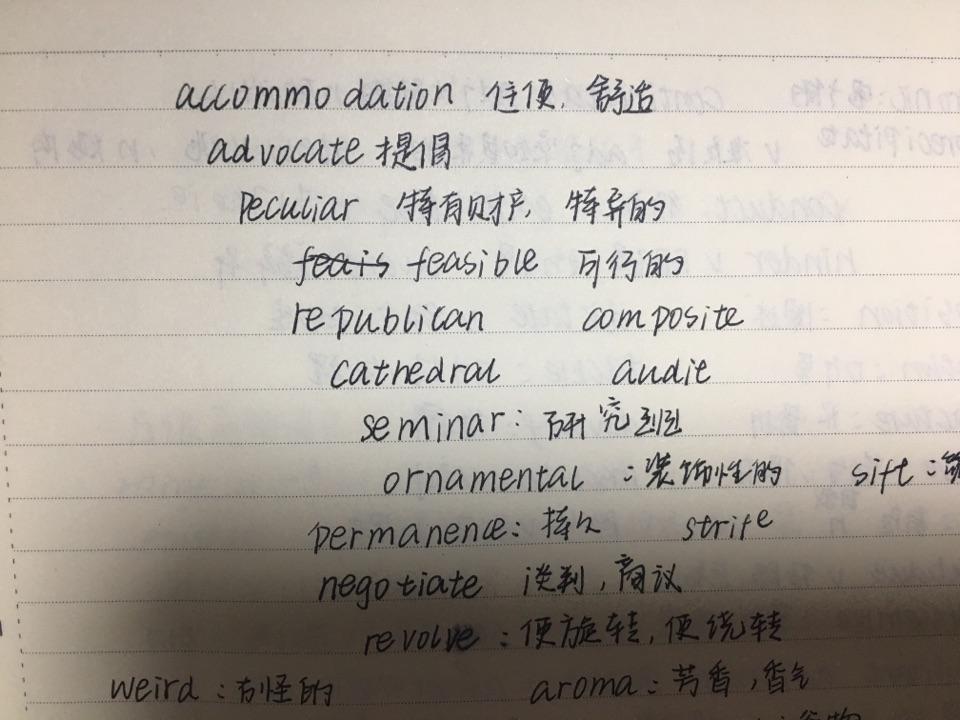 accommodation 住便, 舒适
advocate 提倡
Peculiar 特有财产, 特异的
feais feasible 可行的
republican composite
cathedral audit
seminar: 研究班
ornamental :装饰性的 sift :
permanence: 持久 strife
negotiate 谈判, 商议
revolve :使旋转, 使绕转
weird :古怪的 aroma: 芳香, 香气